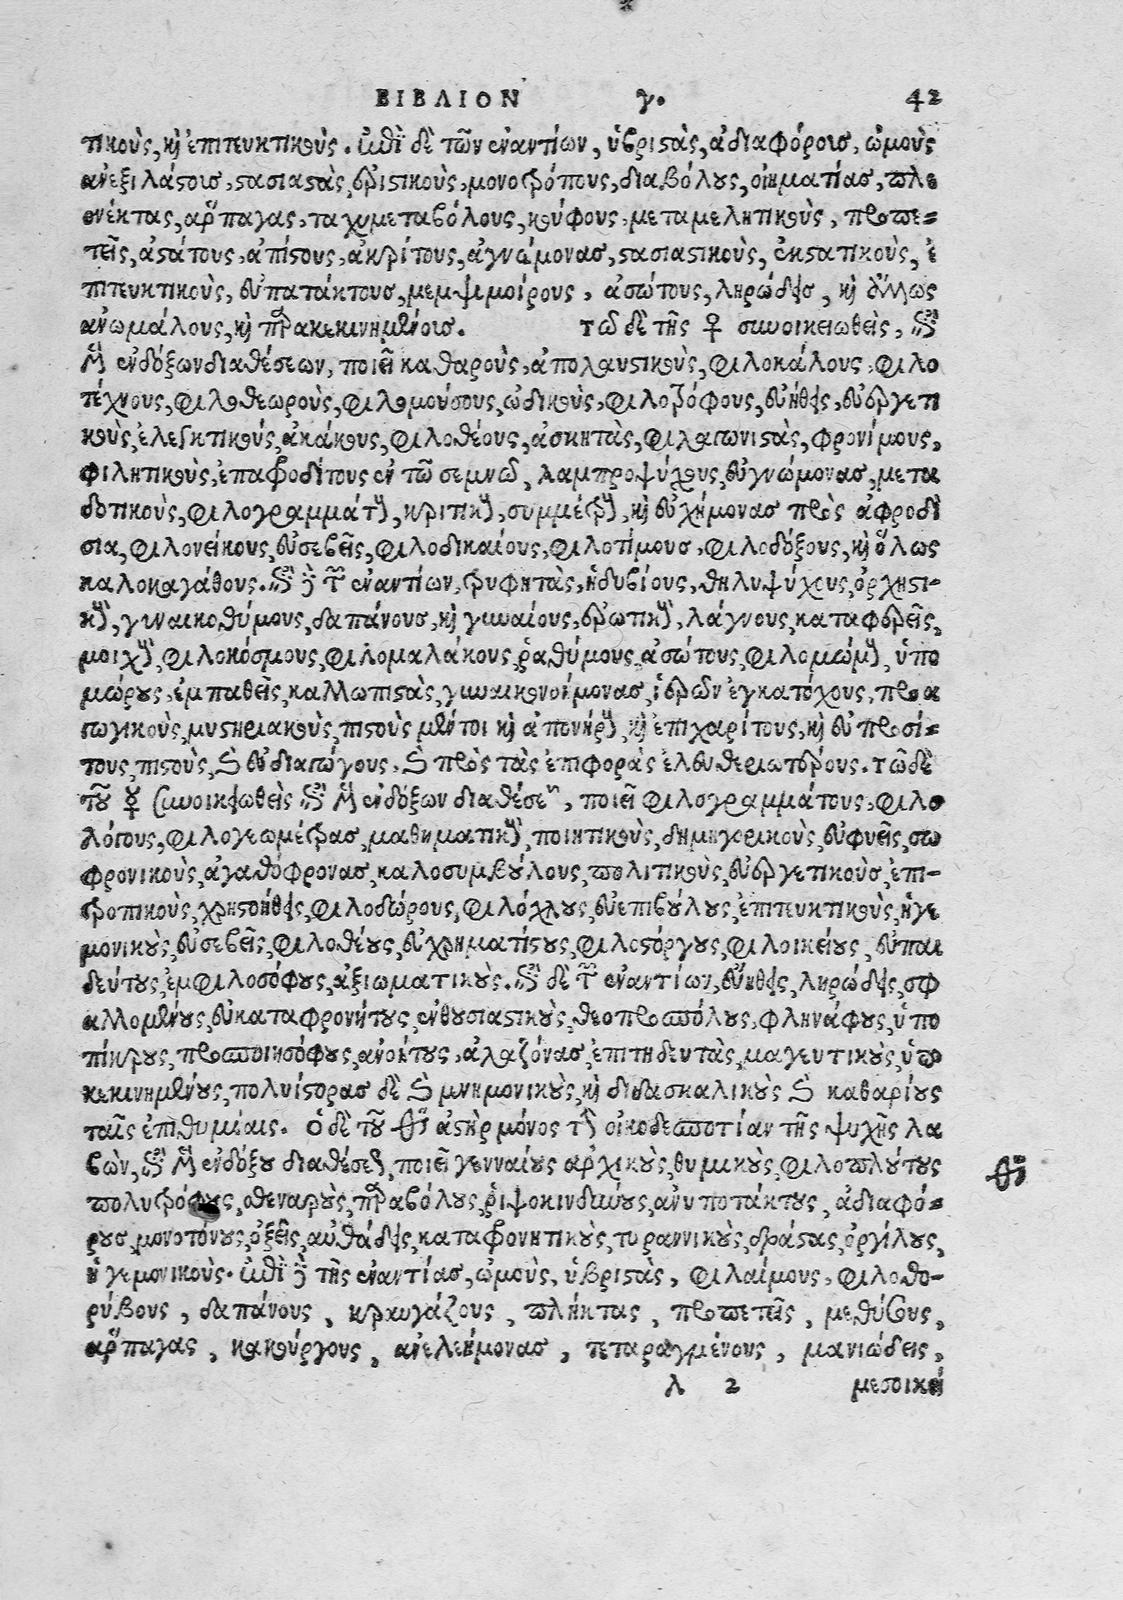 ΒΙΒΛΙΟΝ γ. 42
τικοὺς, κὶ ἐπιτευκτικοὺς. ἐπὶ δὲ τῶν ἐναντίων, ὑβριστὰς, ἀδιαφόροισ, ὠμοὺς
ἀνεξιλάστοισ, στασιαστὰς, ἐριστικοὺς, μονοτρόπους, διαβόλους, οἰηματίασ, πλε
ονέκτας, ἅρπαγας, ταχυμεταβόλους, κούφους, μεταμελητικοὺς, προπε=
τεῖς, ἀστάτους, ἀπίστους, ἀκρίτους, ἀγνώμονασ, στασιαστικοὺς, ἐκστατικοὺς, ἐ
πιτευκτικοὺς, εὐπατάκτουσ, μεμψιμοίρους, ἀσώτους, ληρώδεισ, κὶ ὅλως
ἀνωμάλους, κὶ παρακεκινημένοισ. τῶ δὲ τῆς ♀ συνοικειωθεὶς, ἐπὶ
μὲν ἐνδόξων διαθέσεων, ποιεῖ καθαροὺς, ἀπολαυστικοὺς, φιλοκάλους, φιλο
τέχνους, φιλοθεωροὺς, φιλομούσους, ὠδικοὺς, φιλοτρόφους, εὐήθεις, εὐεργετι
κοὺς, ἐλεητικοὺς, ἀκάκους, φιλοθέους, ἀσκητὰς, φιλαγωνιστὰς, φρονίμους,
φιλητικοὺς, ἐπαφροδίτους ἐν τῶ σεμνῶ, λαμπροψύχους, εὐγνώμονασ, μετα
δοτικοὺς, φιλογραμμάτους, κριτικοὺς, συμμέτρους, κὶ εὐχήμονασ πρὸς ἀφροδί
σια, φιλονείκους, εὐσεβεῖς, φιλοδικαίους, φιλοτίμουσ, φιλοδόξους, κὶ ὅλως
καλοκαγάθους. ἐπὶ δὲ τῶν ἐναντίων, τρυφητὰς, ἡδυβίους, θηλυψύχους, ὀρχηστι-
κοὺς, γυναικοθύμους, δαπάνουσ, κὶ γυναίους, ἐρωτικοὺς, λάγνους, καταφερεῖς,
μοιχοὺς, φιλοκόσμους, φιλομαλάκους, ῥαθύμους, ἀσώτους, φιλομώμους, ὑπο
μώρους, ἐμπαθεῖς, καλλωπιστὰς, γυναικονοήμονασ, ἱερῶν ἐγκατόχους, προα
γωγικοὺς, μυστηριακοὺς, πιστοὺς μέντοι κὶ ἀπονήρους, κὶ ἐπιχαρίτους, κὶ εὐπροσί=
τους, πιστοὺς, καὶ εὐδιαγώγους, καὶ πρὸς τὰς ἐπιφορὰς ἐλευθεριωτέρους. τῶ δὲ
τοῦ ☿ συνοικειωθεὶς ἐπὶ μὲν ἐνδόξων διαθέσεων, ποιεῖ φιλογραμμάτους, φιλο
λόγους, φιλογεωμέτρασ, μαθηματικοὺς, ποιητικοὺς, δημηγορικοὺς, εὐφυεῖς, σω
φρονικοὺς, ἀγαθόφρονασ, καλοσυμβούλους, πολιτικοὺς, εὐεργετικοὺσ, ἐπι-
τροπικοὺς, χρηστοήθεις, φιλοδώρους, φιλόχλους, εὐεπιβούλους, ἐπιτευκτικοὺς, ἡγε
μονικοὺς, εὐσεβεῖς, φιλοθέους, εὐχρηματίστους, φιλοστόργους, φιλοικείους, εὐπαι
δεύτους, ἐμφιλοσόφους, ἀξιωματικοὺς. ἐπὶ δὲ τῶν ἐναντίων, εὐήθεις, ληρώδεις, σφ
αλλομένους, εὐκαταφρονήτους, ἐνθουσιαστικοὺς, θεοπροπόλους, φληνάφους, ὑπο
πίκρους, προσποιησόφους, ἀνοήτους, ἀλαζόνασ, ἐπιτηδευτὰς, μαγευτικοὺς, ὑπο
κεκινημένους, πολυίστορασ δὲ καὶ μνημονικοὺς, κὶ διδασκαλικοὺς καὶ καθαρίους
ταῖς ἐπιθυμίαις. ὁ δὲ τοῦ ♂ ἀστὴρ μόνος τὴν οἰκοδεσποτίαν τῆς ψυχῆς λα
βὼν, ἐπὶ μὲν ἐνδόξου διαθέσεως, ποιεῖ γενναίους, ἀρχικοὺς, θυμικοὺς, φιλοπλούτους
πολυτρόπους, σθεναροὺς, παραβόλους, ῥιψοκινδύνους, ἀνυποτάκτους, ἀδιαφό=
ρουσ, μονοτόνους, ὀξεῖς, αὐθάδεις, καταφρονητικοὺς, τυραννικοὺς, δράστας, ὀργίλους,
ἡγεμονικοὺς. ἐπὶ δὲ τῆς ἐναντίασ, ὠμοὺς, ὑβριστὰς, φιλαίμους, φιλοθο-
ρύβους, δαπάνους, κραυγάζους, πλήκτας, προπετεῖς, μεθύσους,
ἅρπαγας, κακούργους, ἀνελεήμονασ, τεταραγμένους, μανιώδεις,
λ 2 μεσοικεί